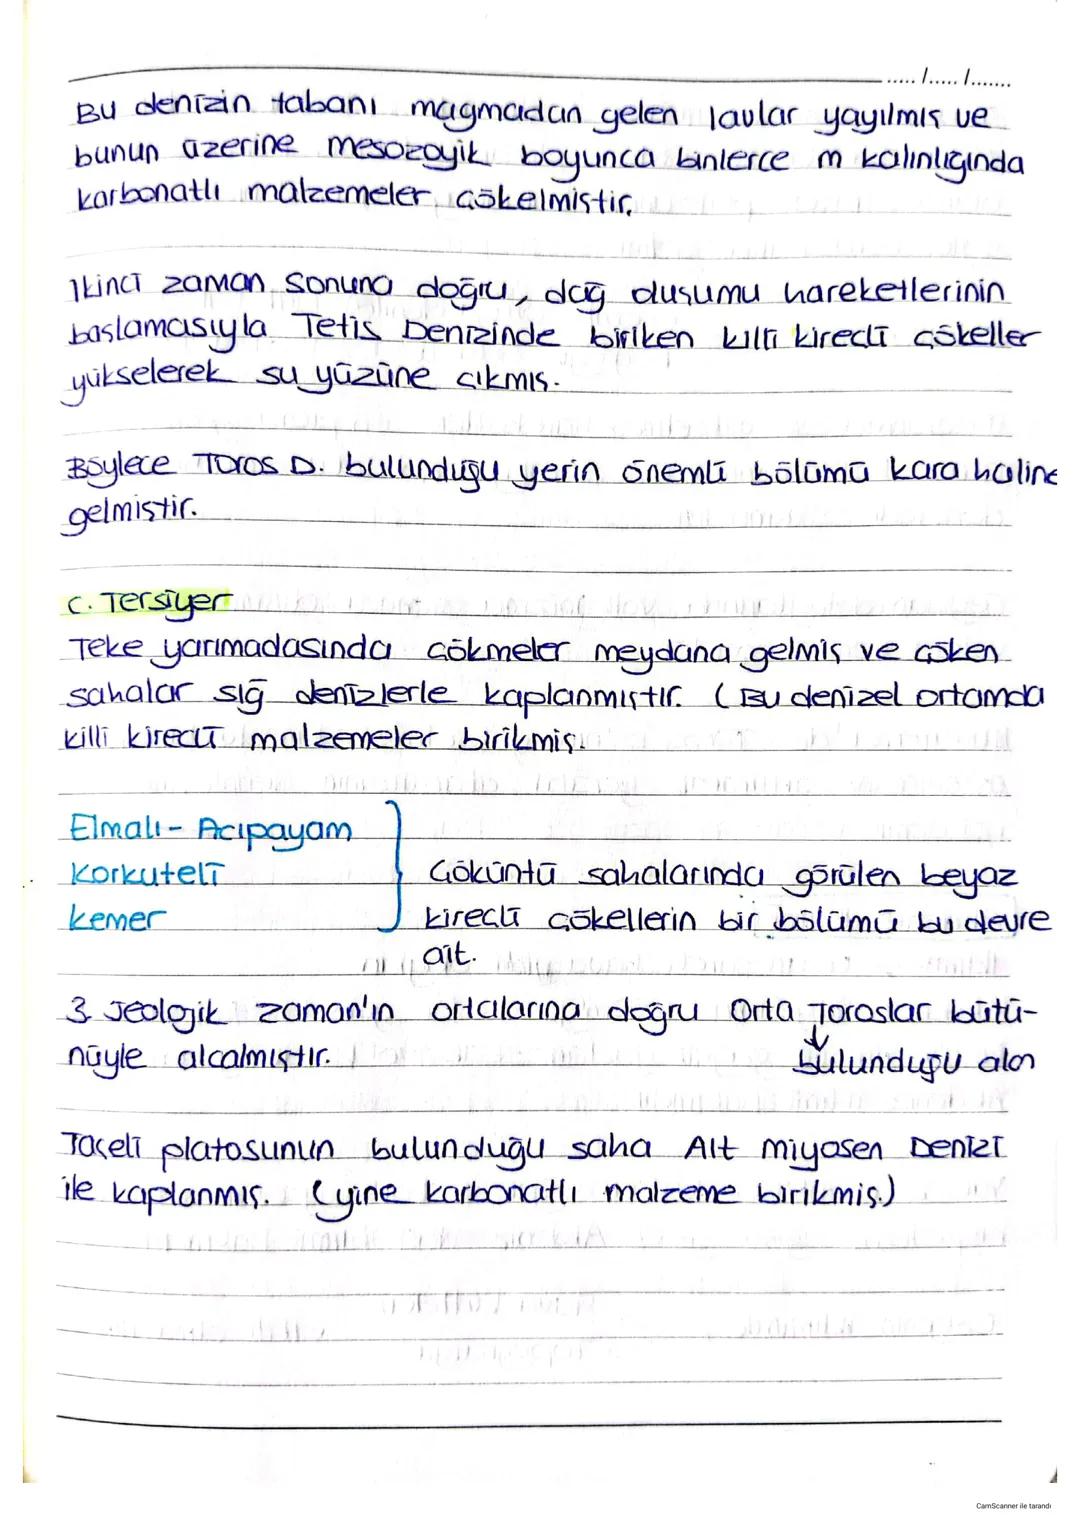 ...../...../.......
Bu denizin tabanı magmadan gelen lavlar yayılmış ve
bunun üzerine mesozoyik boyunca binlerce m kalınlığında
karbonatlı malzemeler çökelmiştir.
İkinci zaman sonuna doğru, dağ oluşumu hareketlerinin
başlamasıyla Tetis Denizinde biriken killi kireçli çökeller
yükselerek su yüzüne çıkmış.
Böylece TOROS D. bulunduğu yerin önemli bölümü kara haline
gelmiştir.
C. Tersiyer
Teke yarımadasında çökmeler meydana gelmiş ve çöken
sahalar sığ denizlerle kaplanmıştır. (Bu denizel ortamda
killi kireçli malzemeler birikmiş.
Elmalı - Acıpayam
Korkuteli
Kemer
Çöküntü sahalarında görülen beyaz
kireçli çökellerin bir bölümü bu devre
ait.
3. Jeolojik zaman'ın ortalarına doğru Orta Toroslar bütü-
nüyle alçalmıştır. ↓ bulunduğu alan
Taşeli platosunun bulunduğu saha Alt miyosen Denizi
ile kaplanmış. (yine karbonatlı malzeme birikmiş.)
CamScanner ile tarandı